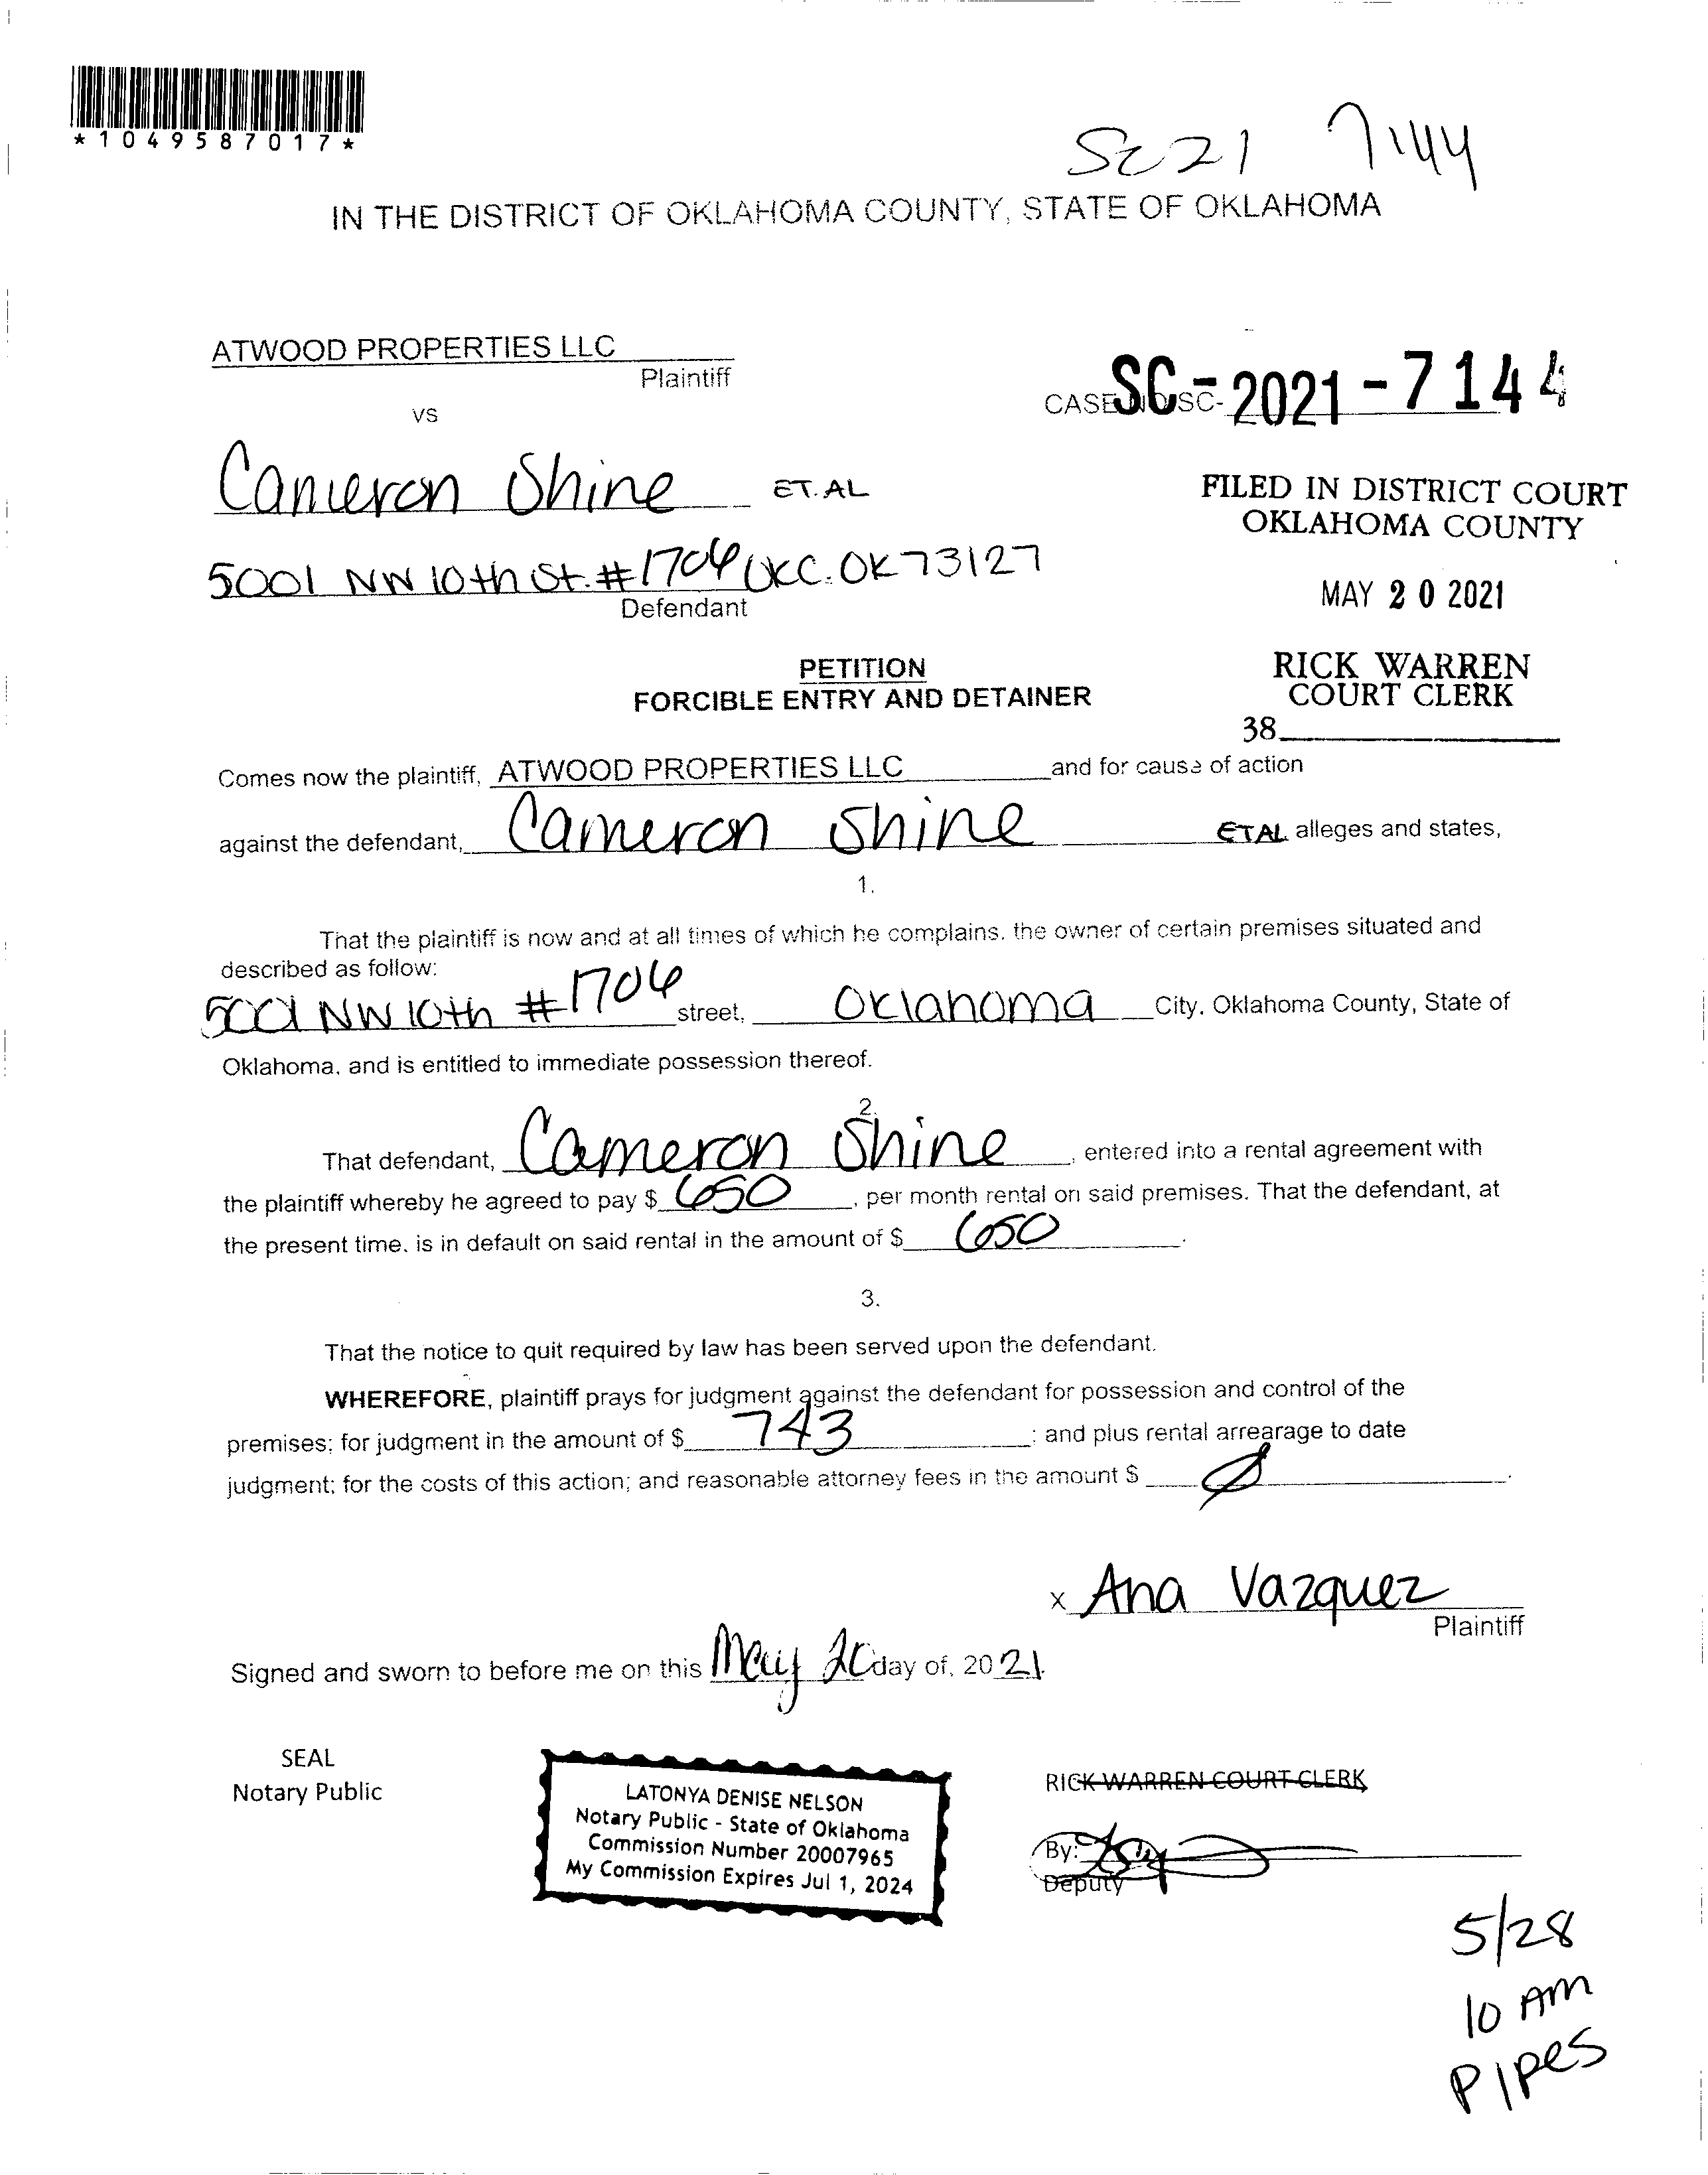 *1049587017*
SC21 7144
IN THE DISTRICT OF OKLAHOMA COUNTY, STATE OF OKLAHOMA
ATWOOD PROPERTIES LLC
Plaintiff
vs
CASE NO SC-
SC-2021-7144
Cameron Shine ET.AL
5001 NW 10th St. #1706 OKC. OK 73127
Defendant
FILED IN DISTRICT COURT
OKLAHOMA COUNTY
MAY 20 2021
RICK WARREN
COURT CLERK
38
PETITION
FORCIBLE ENTRY AND DETAINER
Comes now the plaintiff, ATWOOD PROPERTIES LLC and for cause of action
against the defendant, Cameron Shine ETAL alleges and states,
1.
That the plaintiff is now and at all times of which he complains. the owner of certain premises situated and
described as follow:
5001 NW 10th #1706 street, Oklahoma City, Oklahoma County, State of
Oklahoma, and is entitled to immediate possession thereof.
2.
That defendant, Cameron Shine, entered into a rental agreement with
the plaintiff whereby he agreed to pay $ 650, per month rental on said premises. That the defendant, at
the present time, is in default on said rental in the amount of $ 650.
3.
That the notice to quit required by law has been served upon the defendant.
WHEREFORE, plaintiff prays for judgment against the defendant for possession and control of the
premises; for judgment in the amount of $ 743; and plus rental arrearage to date
judgment; for the costs of this action; and reasonable attorney fees in the amount $ Ø.
x Ana Vazquez
Plaintiff
Signed and sworn to before me on this May 20 day of, 2021.
SEAL
Notary Public
LATONYA DENISE NELSON
Notary Public - State of Oklahoma
Commission Number 20007965
My Commission Expires Jul 1, 2024
RICK WARREN COURT CLERK
By:
Deputy
5/28
10 AM
Pipes